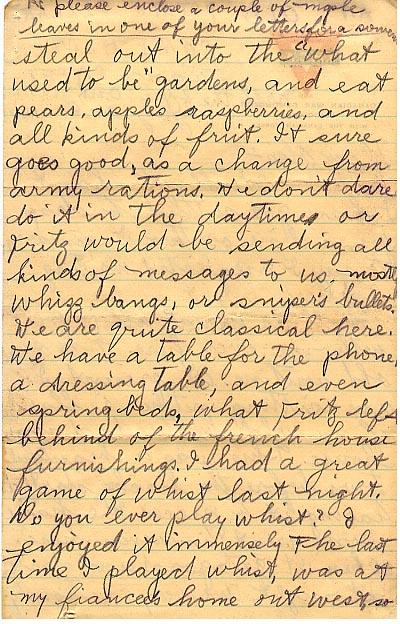 please enclose a couple of maple
leaves in one of your letters for a
steal out into the "what
used to be" gardens, and eat
pears, apples raspberries, and
all kinds of fruit. It sure
goes good, as a change from
army rations. We don't dare
do it in the daytime, or
Fritz would be sending all
kinds of messages to us. mostly
whizz bangs, or sniper's bullets.
We are quite classical here.
We have a table for the phone,
a dressing table, and even
spring beds, what Fritz left
behind of the french house
furnishings. I had a great
game of whist last night.
Do you ever play whist? I
enjoyed it immensely The last
time I played whist, was at
my fiancees home out west, so